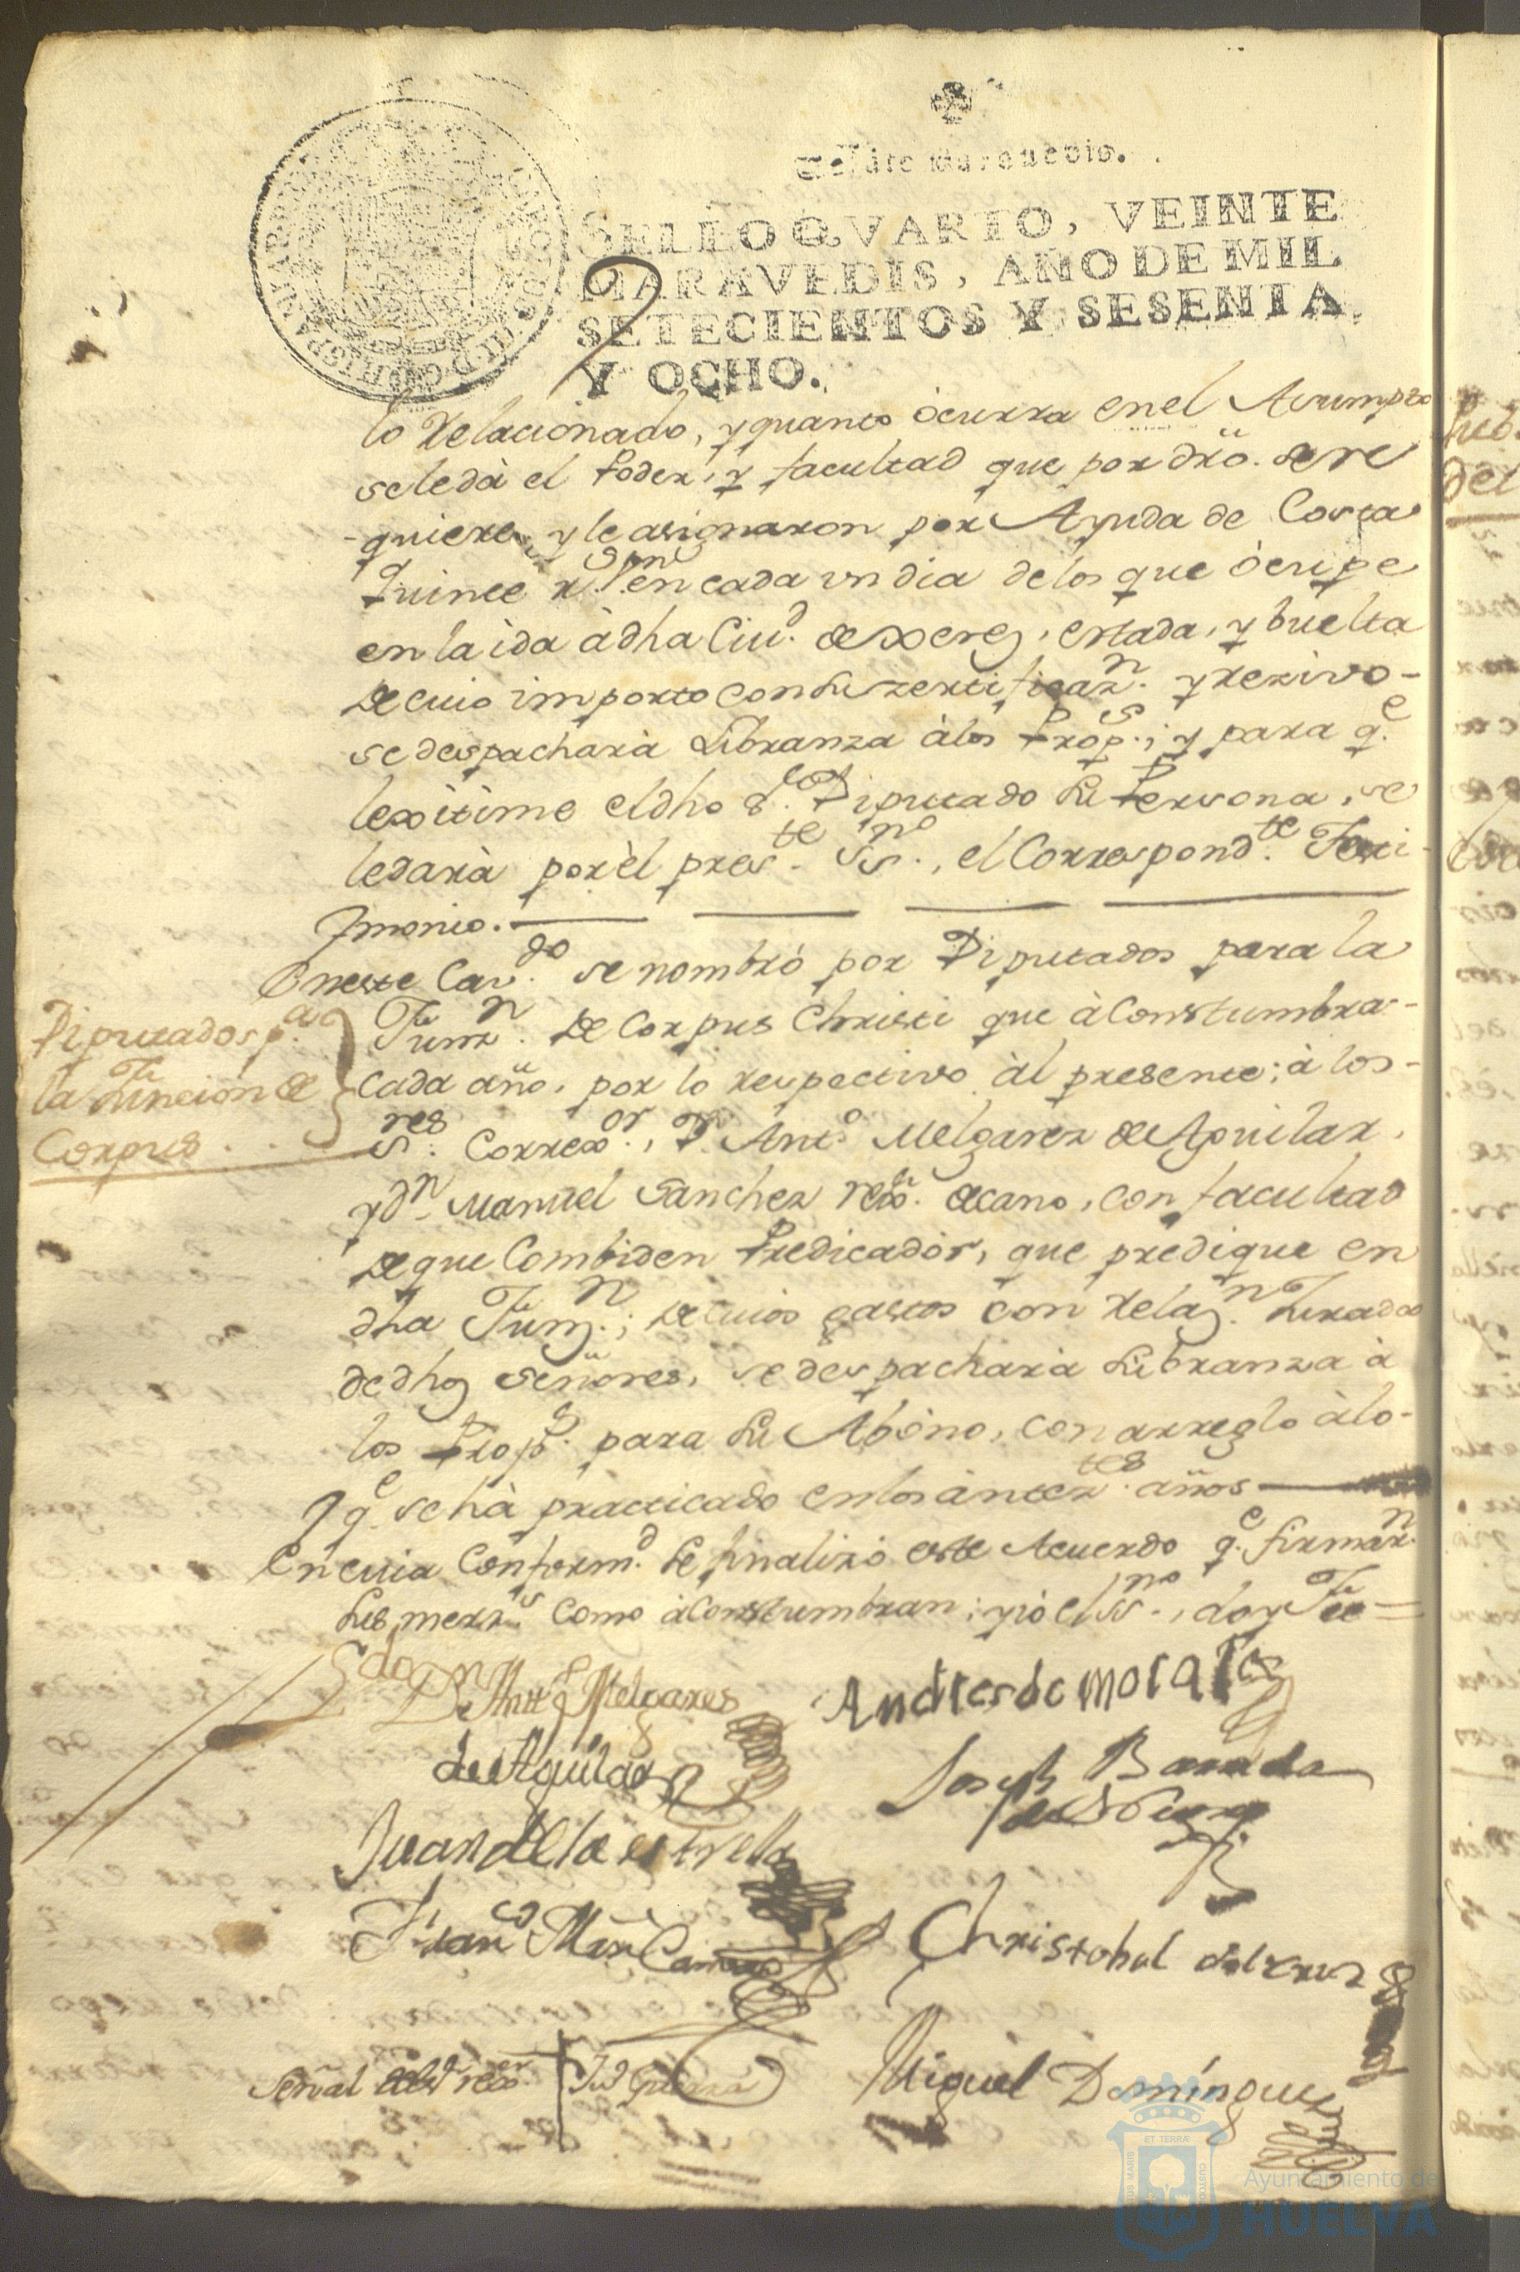 SELLO QVARTO, VEINTE
MARAVEDIS, AÑO DE MIL
SETECIENTOS Y SESENTA
Y OCHO.
lo Relacionado, y quanto òcurra en el Asumpto
se le dà el Poder, y facultad que por dr̃o. se re
-quiere, y le asignaron por Ayuda de Costa
Quince rs. vn en cada un dia de los que òcupe
en la ida à dha Ciud. de Xerez, estada, y buelta
de cuio importo con su zertificazn. y rezivo-
se despacharà Libranza à los Props.; y para qe
lexitime el dho Sor. Diputado su Persona, se
le darà por èl preste. SSno., el Correspondte. Testi-
monio.
En este Cavdo. se nombrò por Diputados para la
Diputados pa.
la Función de
Corpus
Funzn. de Corpus Christi que àconstumbra-
cada año, por lo respectivo àl presente; à los-
Sres. Correxor., Dn. Anto. Melgarez de Aguilar,
y Dn. Manuel Sanchez rexr. decano, con facultad
de que Combiden Predicadòr, que predique en
dha Funzn.; de cuios gastos con Relazn. Jurada
de dhos señores, se despacharà Libranza à
los Props. para su Abòno, con arreglo à lo-
qe. se hà pràcticado en los ànteztes. años
En cuia Conformd. se finalizò este Acuerdo qe. firmarn.
sus merzs. como àconstumbran; y iò el SSno., doy Fee=
Ldo Dn. Antto. Melgares
de Aguilar
Andres de morales
Joseph Barreda
Juan de la estrella
Franco Mrn
Christobal del Cruz
Señal del rexor. Jud Guerra
Miguel Domínguez
Ayuntamiento de
HUELVA